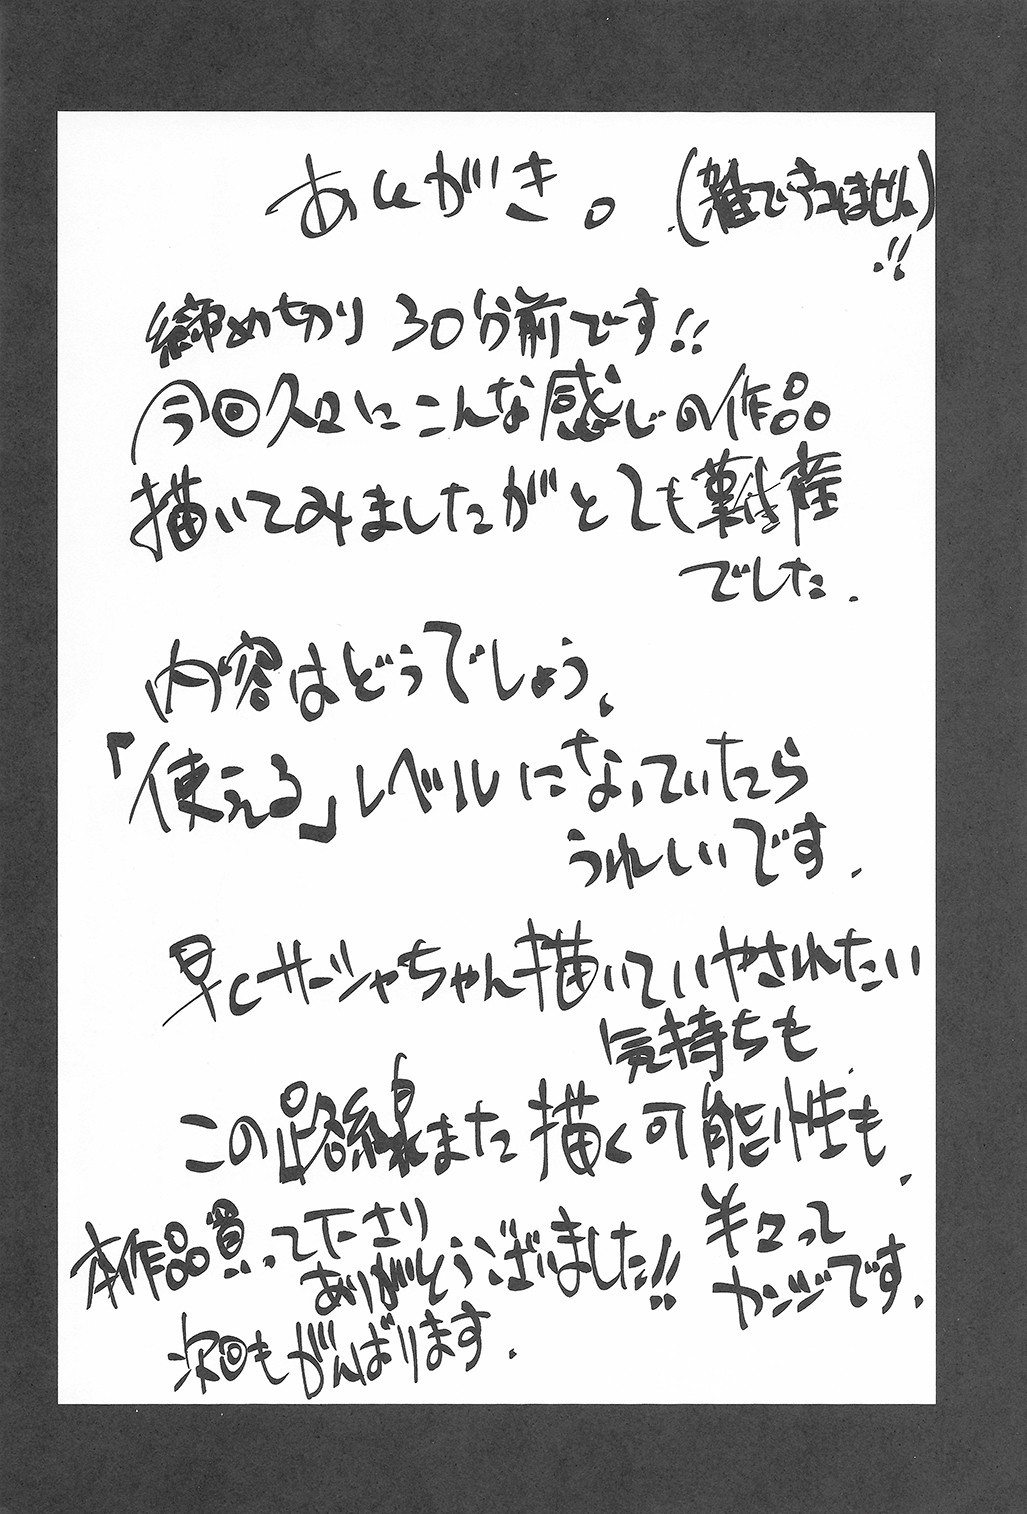 あとがき。
(雑ですみません)!!
締め切り30分前です!!
今回久々にこんな感じの作品
描いてみましたがとても難産
でした.
内容はどうでしょう、
「使える」レベルになっていたら
うれしいです.
早くサーシャちゃん描いていやされたい
気持ちも、
この路線また描く可能性も、
半々って
カンジです.
本作品買って下さり
ありがとうございました!!
次回もがんばります.